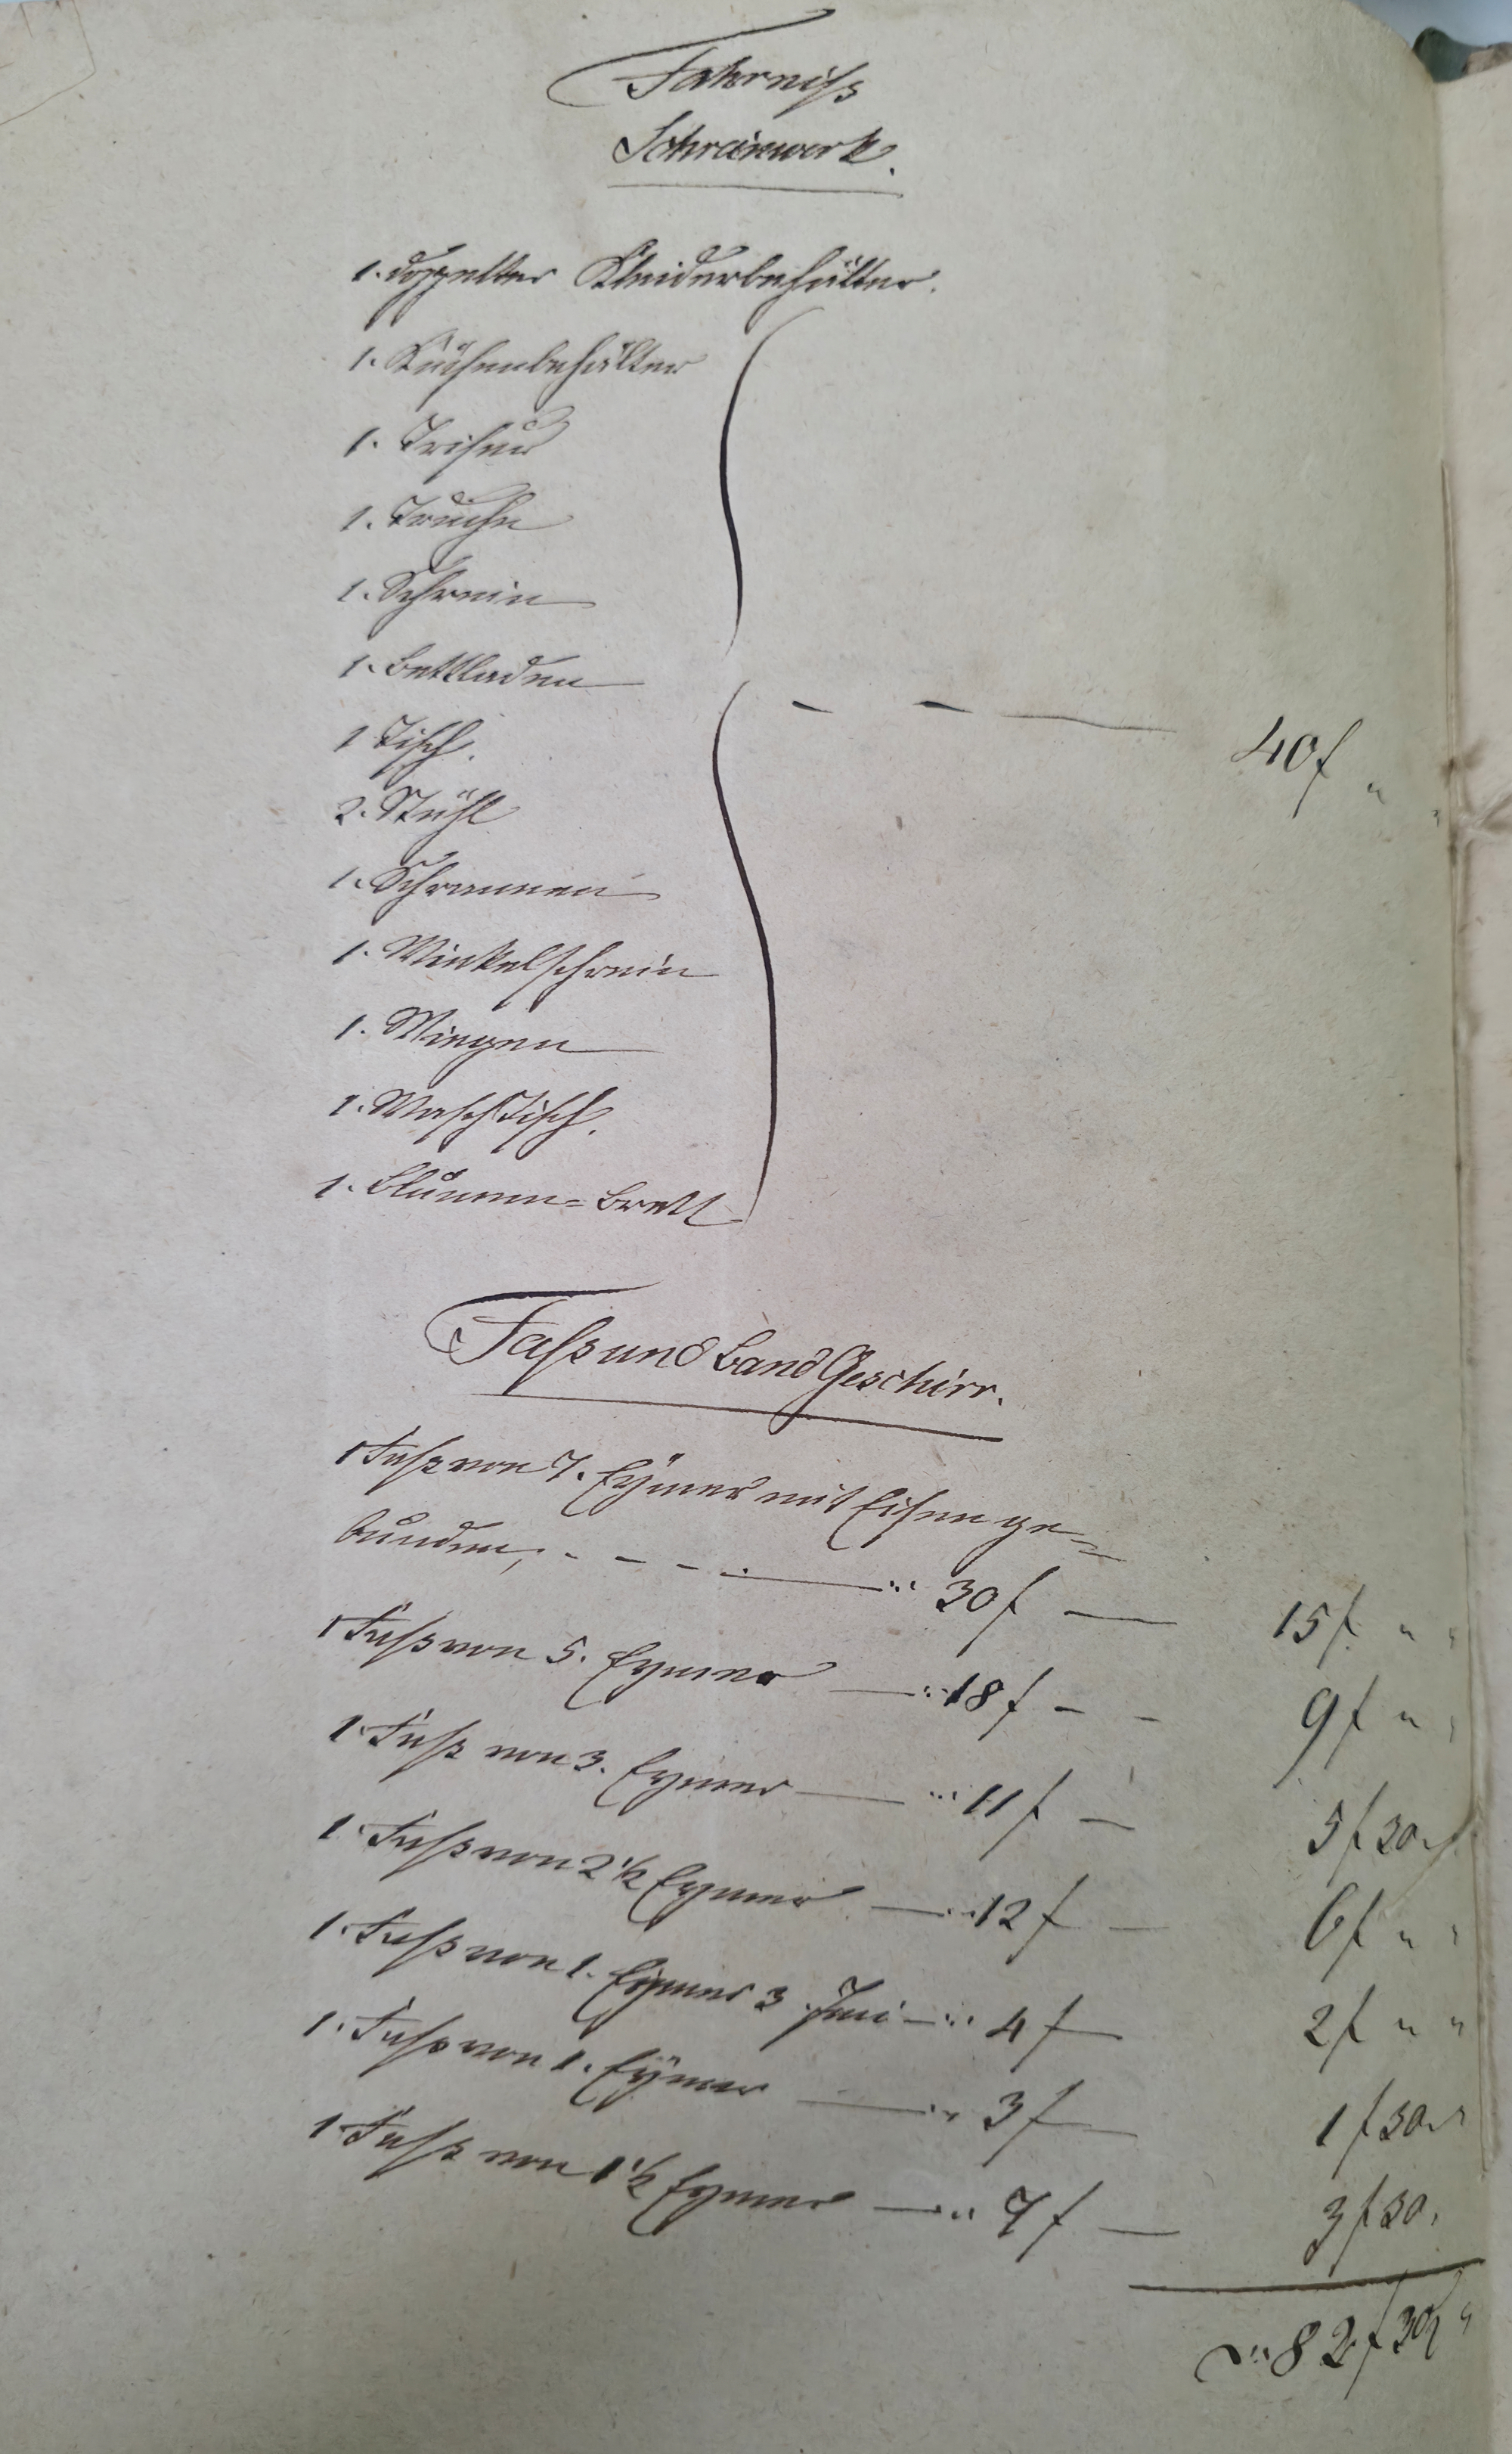 Fahrniß
Schreinwerk.
1. doppelter Kleiderbehälter.
1. Küchenbehälter
1. Trisur
1. Truche
1. Schrein
1. Bettladen
1 Tisch.
2. Stühl
1. Schrannen
1. Winkelschrein
1. Wiegen
1. WaschTisch.
1. Blumen=Brett
40 f " "
Faß und Band Geschirr.
1 Faß von 7. Eÿmer mit Eisen ge=
bunden, - - - - 30 f — 15 f. " "
1 Faß von 5. Eymer — 18 f - - 9 f " "
1. Faß von 3. Eymer — 11 f — 5 f 30 "
1. Faß von 2 1/2 Eymer — 12 f — 6 f " "
1. Faß von 1. Eymer 3. Imi — 4 f — 2 f " "
1. Faß von 1. Eÿmer — 3 f — 1 f 30 "
1. Faß von 1 1/2 Eymer — 7 f — 3 f 30 "
82 f 30 "